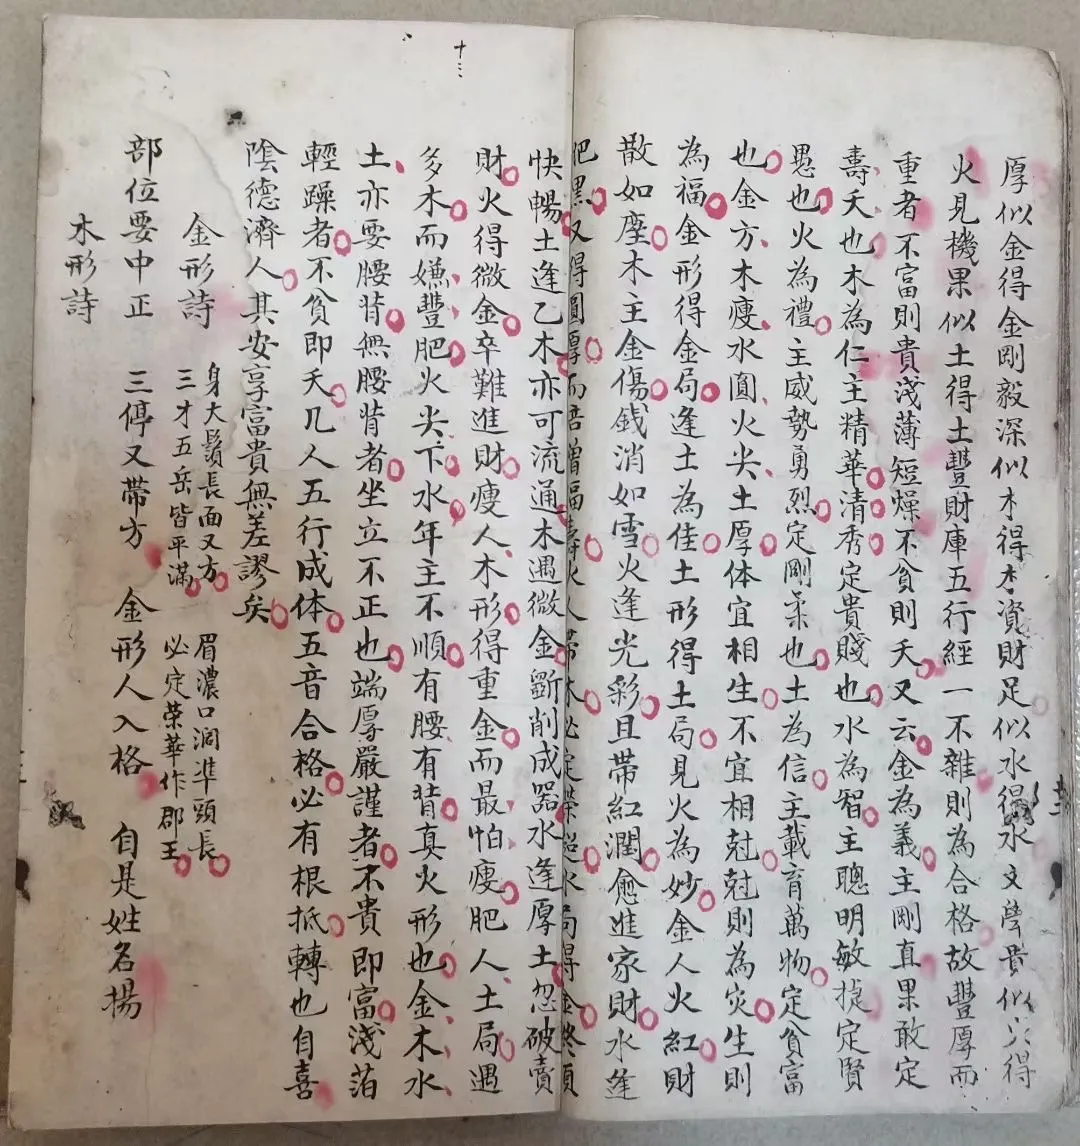 厚似金得金剛毅深似木得木資財足似水得水文學貴似火得
火見機果似土得土豐財庫五行經一不雜則為合格故豐厚而
重者不富則貴淺薄短燥不貧則夭又云金為義主剛直果敢定
壽夭也木為仁主精華清秀定貴賤也水為智主聰明敏捷定賢
愚也火為禮主威勢勇烈定剛柔也土為信主載育萬物定貧富
也金方木瘦水圓火尖土厚体宜相生不宜相尅尅則為灾生則
為福金形得金局逢土為佳土形得土局見火為妙金人火紅財
散如塵木主金傷錢消如雪火逢光彩且帶紅潤愈進家財水逢
肥黑又得圓厚而倍增福壽火人帶木必定榮超水局得金終須
快暢土逢乙木亦可流通木遇微金斵削成器水逢厚土忽破賣
財火得微金卒難進財瘦人木形得重金而最怕瘦肥人土局遇
多木而嫌豐肥火尖下水年主不順有腰有背真火形也金木水
土亦要腰背無腰背者坐立不正也端厚嚴謹者不貴即富淺泊
輕躁者不貧即夭凡人五行成体五音合格必有根抵轉也自喜
陰德濟人其安享富貴無差謬矣
金形詩 身大鬚長面又方 眉濃口濶準頭長
三才五岳皆平滿 必定榮華作郡王
部位要中正 三停又帶方 金形人入格 自是姓名揚
木形詩
十三